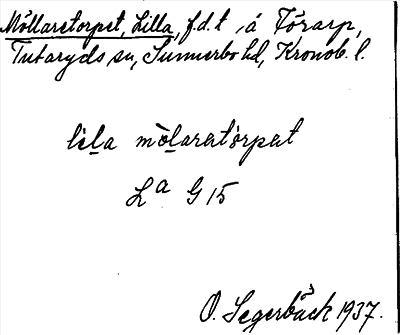 Möllaretorpet, Lilla, f.d.t. å Törarp,
Tutaryds sn, Sunnerbo hd, Kronob. l.
lila mölaretorpet
La G 15
O. Segerbäck 1937.